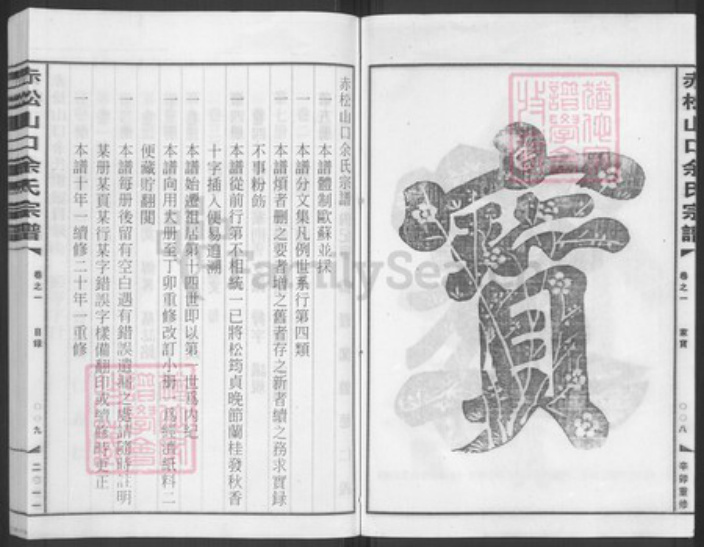 赤松山口余氏宗譜
卷之一
家寶
〇〇八
辛卯重修
寶
赤松山口余氏宗譜
一 本譜體制歐蘇並採
一 本譜分文集凡例世系行第四類
一 本譜煩者刪之要者增之舊者存之新者續之務求實録
不事粉飾
一 本譜從前行第不相統一已將松筠貞晚節蘭桂發秋香
十字插入便易追溯
一 本譜始遷祖居第十四世即以第一世爲内紀
一 本譜向用大册至丁卯重修改訂小册一爲經濟紙料二
便藏貯翻閱
一 本譜每册後留有空白遇有錯誤遺漏之處請隨時註明
某册某頁某行某字錯誤字樣備翻印或續修時更正
一 本譜十年一續修二十年一重修
赤松山口余氏宗譜
卷之一
目録
〇〇九
二〇一一
FamilySearch